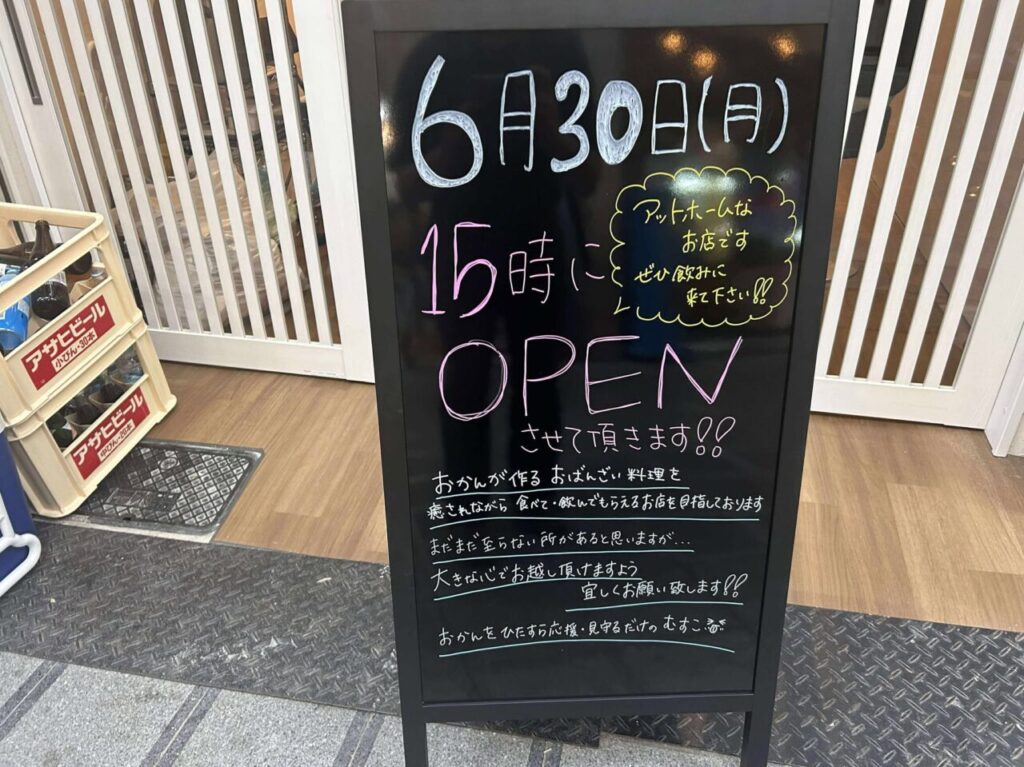 6月30日(月)
アットホームな
お店です
ぜひ飲みに
来て下さい!!
15時に
OPEN
させて頂きます!!
おかんが作る おばんざい料理を
癒されながら 食べて・飲んでもらえるお店を目指しております
まだまだ至らない所があると思いますが...
大きな心でお越し頂けますよう
宜しくお願い致します!!
おかんを ひたすら応援・見守るだけの むすこ
アサヒビール
小びん・30本
アサヒビール
中びん・20本